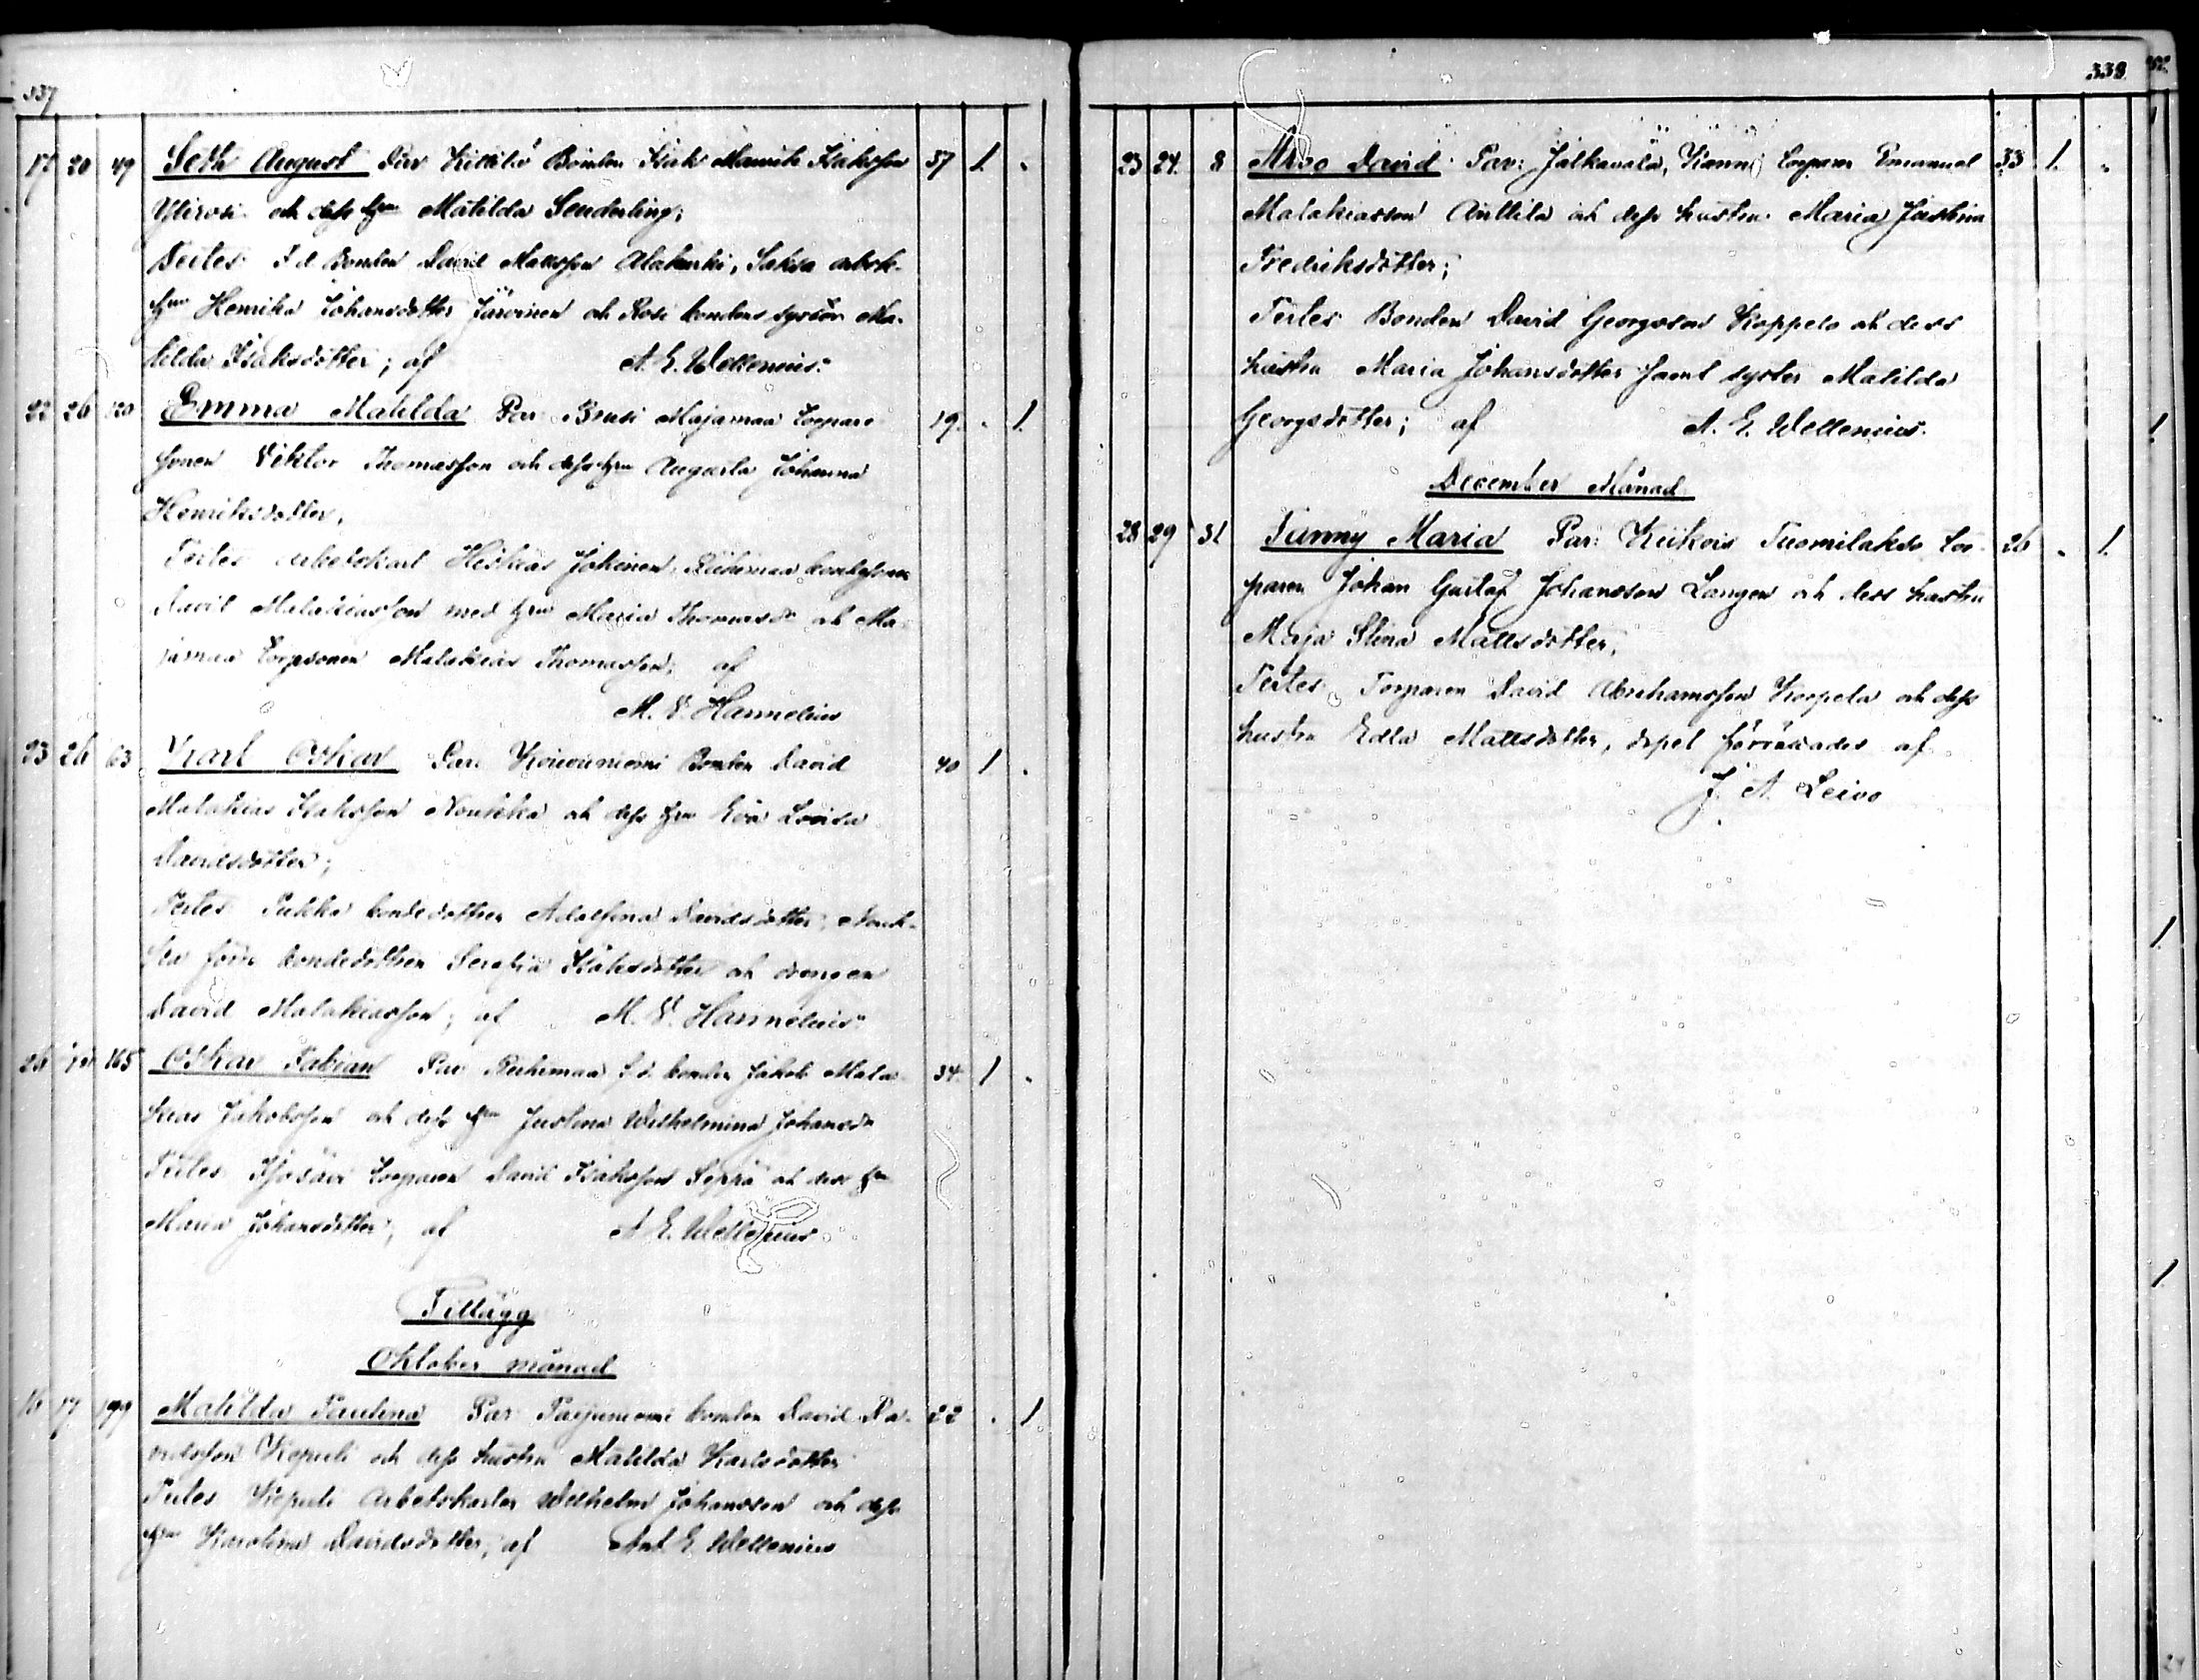 337
17 20 49 Seth August Par Kiikilä Bonden Isak Manuel Isaksson 37 1 .
Ylirosi och dess hru Matilda Senderling;
Testes F.d. Bonden David Mattsson Alakurki, Saksa arbetk.
hru Henrika Johansdotter Järvinen och Rosi bondens syster Ma-
tilda Isaksdotter; af A. E. Wellenius.
22 26 120 Emma Matilda Par Brusi Majamaa torpare- 19 . 1
sonen Viktor Thomasson och dess hru Augusta Johanna
Henriksdotter,
Testes Arbetskarl Heskias Jokinen, Riihimaa bondesonen
David Malakiasson med hru Maria Thomasdr och Ma-
jamaa torpsonen Malakias Thomasson; af
M. V. Hannelius
23 26 63 Karl Oskar Par. Koivuniemi Bonden David 40 1 .
Malakias Isaksson Noukka och dess hru Eva Lovisa
Davidsdotter;
Testes Pukka bondedottren Adolfina Davidsdotter, Nouk-
ka förre bondedottren Serafia Isaksdotter och drengen
David Malakiasson; af M. V. Hannelius
26 165 Oskar Fabian Par Riihimaa f.d. bonden Jakob Mala- 34 1 .
kias Jakobsson och dess hru Justina Wilhelmina Johansdr
Testes Isosävi torparen David Isaksson Seppä och dess hru
Maria Johansdotter; af A. E. Wellenius
Tillägg
Oktober månad
16 17 199 Matilda Paulina Par Parjuniemi bonden David Da- 22 . 1
vidsson Kepuli och dess hustru Matilda Karlsdotter
Testes Kepuli Arbetskarlen Wilhelm Johansson och dess
hru Karolina Davidsdotter; af Ant. E. Wellenius
339
23 24 8 Arvo David Par: Jalkavala, Kanni torparen Emanuel 33 1. .
Malakiasson Anttila och dess hustru Maria Justina
Fredriksdotter;
Testes Bonden David Georgsson Koppelo och dess
hustru Maria Johansdotter samt syster Matilda
Georgsdotter; af A. E. Wellenius.
December Månad
28 29 31 Fanny Maria Par: Kiikois Tuomilakso tor- 26 . 1.
paren Johan Gustaf Johansson Langen och dess hustru
Maja Stina Mattsdotter,
Testes Torparen David Abrahamsson Korpela och dess
hustru Edla Mattsdotter, dopet förrättades af
J. A. Leivo